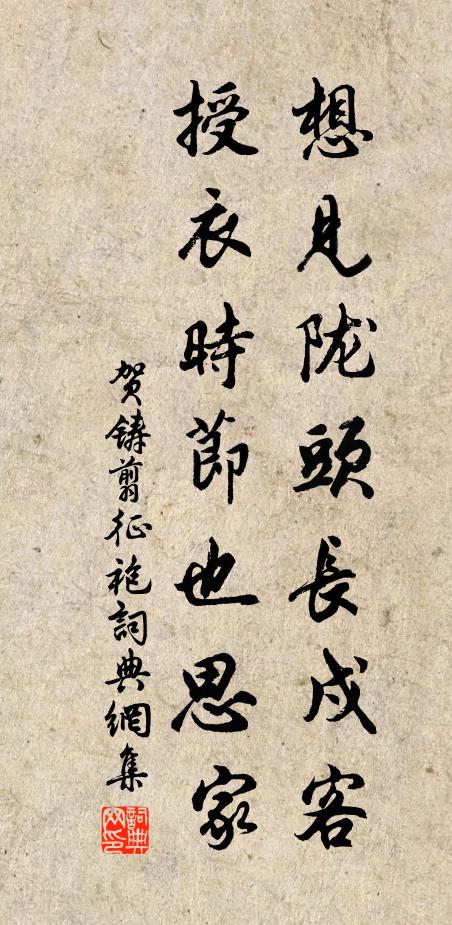 想見陇頭長戍客
授衣時節也思家
贺鑄剪征袍詞典網集
詞典网印